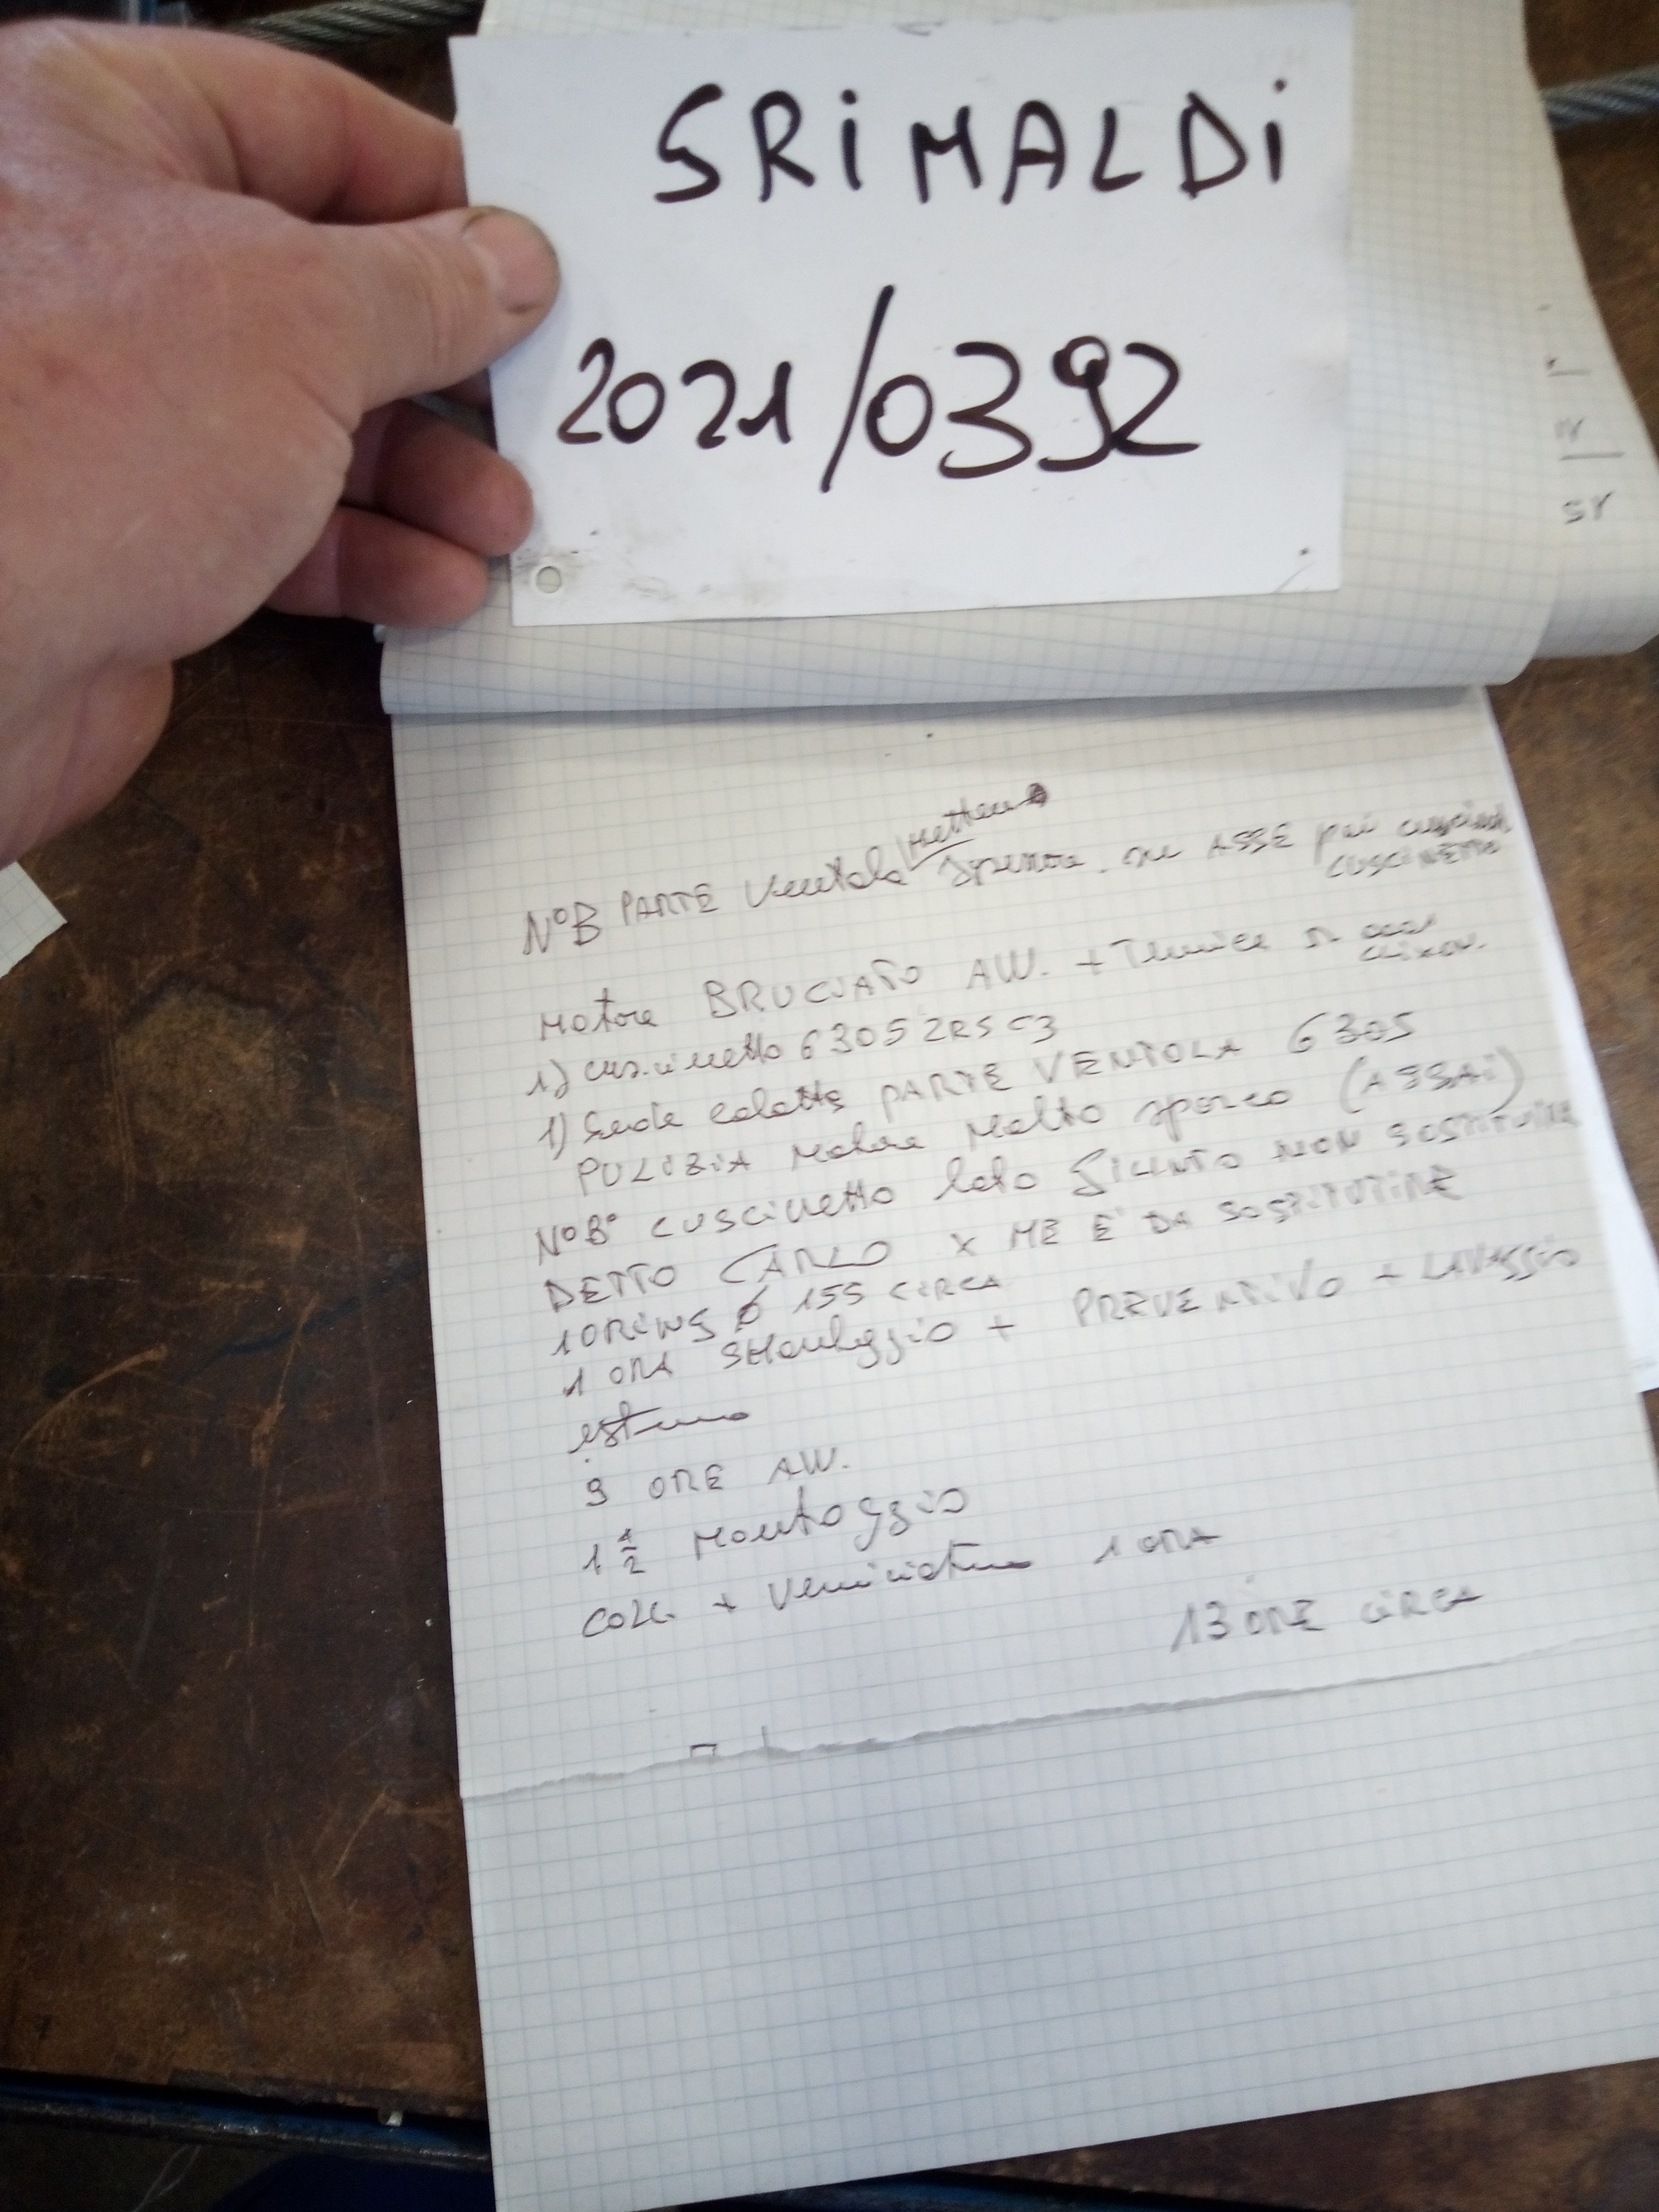 GRIMALDI
2021/0392
N°B PARTE Ventola Mettere spessore su ASSE poi
CUSCINETTO
Motore BRUCIATO AW. + Termica
1) cuscinetto 6305 2RS C3
1) Sede calotta PARTE VENTOLA 6305
PULIZIA Motore Molto sporco (ASSAI)
N°B° cuscinetto lato GIUNTO NON SOSTITUIRE
DETTO CARLO X ME E' DA SOSTITUIRE
1 ORING Ø 155 CIRCA
1 ORA SMontaggio + PREVENTIVO + LAVAGGIO
esterno
9 ORE AW.
1 1/2 Montaggio
COLL. + Verniciatura 1 ORA
13 ORE CIRCA